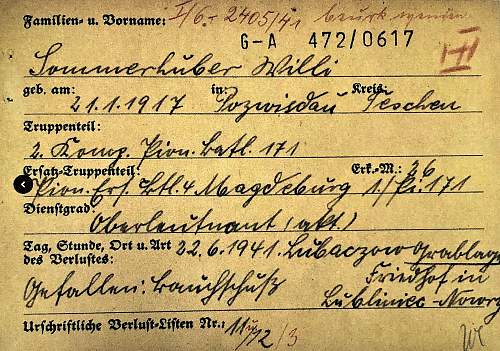 Familien- u. Vorname: I/6.- 2405/41 beurk. werden
G-A 472/0617
Sommerhuber Willi
geb. am: 21.1.1917 in: Kreis: Teschen
Truppenteil:
2. Komp. Pion. Batl. 171
Ersatz-Truppenteil: Erk.-M.: 26
Pion. Ers. Btl. 4 Magdeburg 1./Pi. 171
Dienstgrad:
Oberleutnant (akt.)
Tag, Stunde, Ort u. Art 22.6.1941. Lubaczow Grablage
des Verlustes: Friedhof in
Gefallen: Bauchschuß Lubliniec-Nowy
Urschriftliche Verlust-Listen Nr.: 11 u 12 / 3